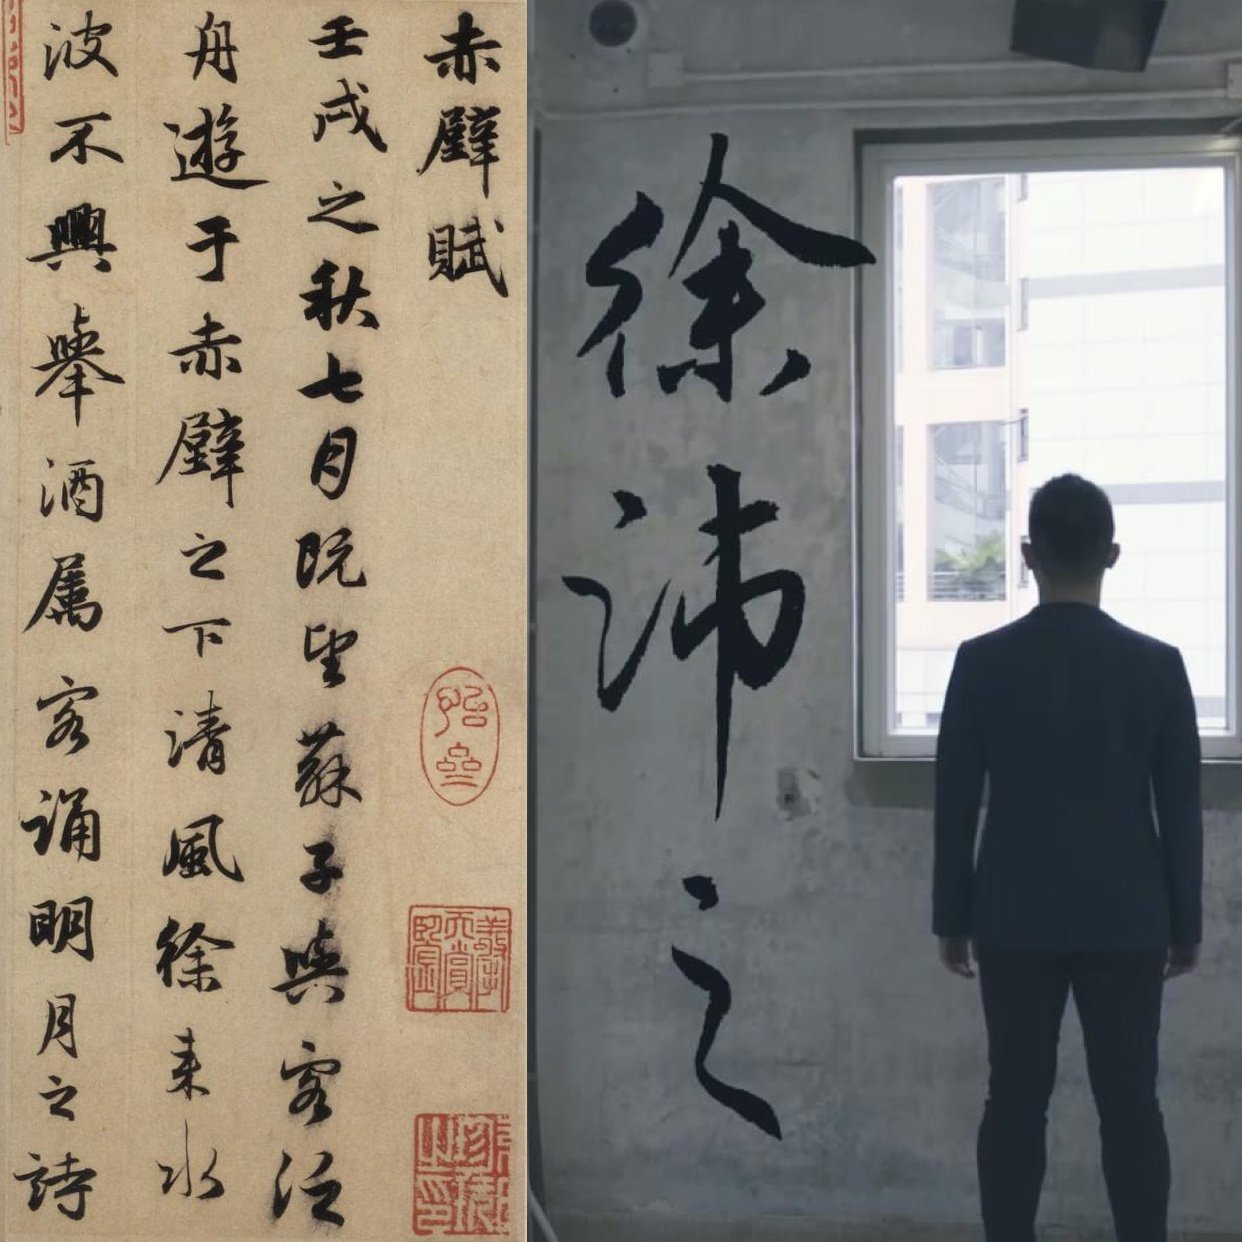 赤壁賦
壬戌之秋七月既望蘇子與客泛
舟遊于赤壁之下清風徐来水
波不興舉酒属客誦明月之詩
徐沛之